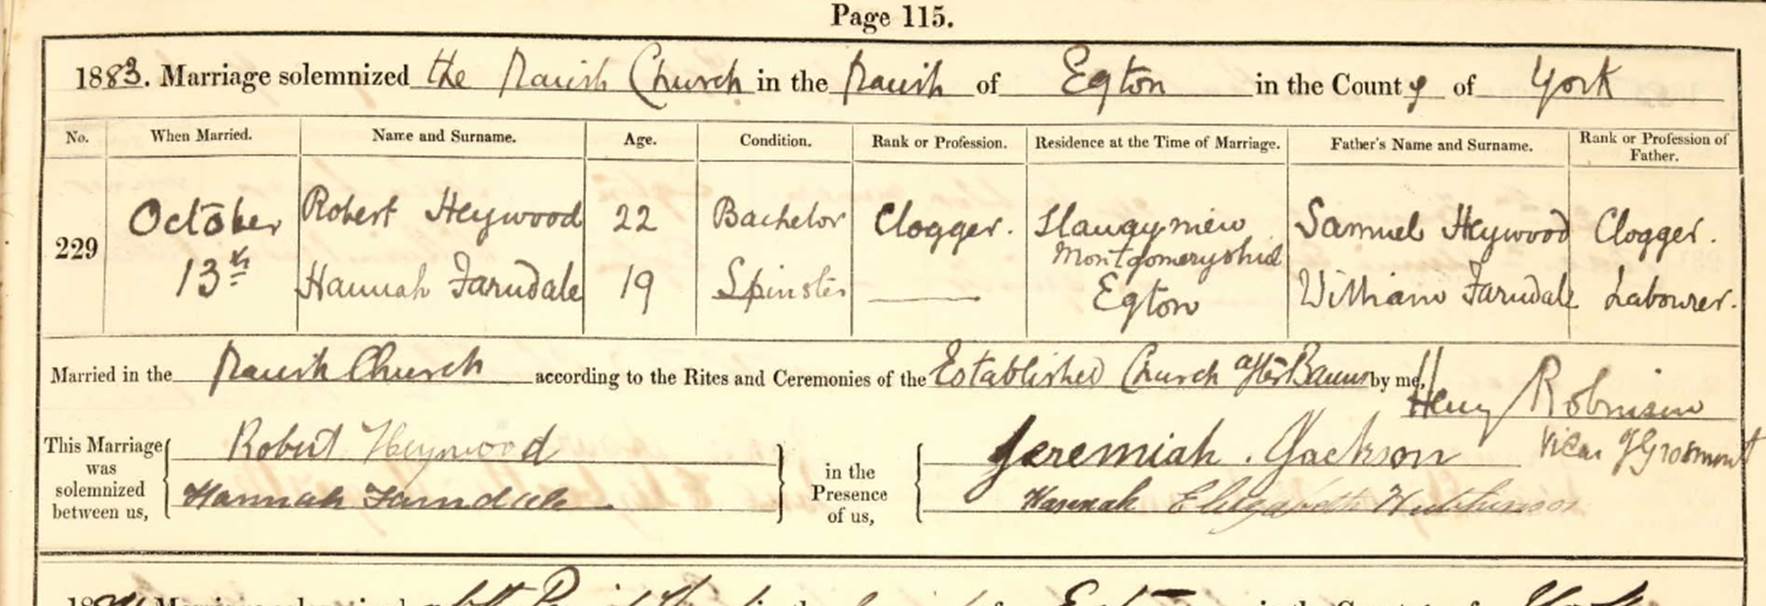 Page 115.
1883. Marriage solemnized the Parish Church in the Parish of Egton in the County of York
No. When Married. Name and Surname. Age. Condition. Rank or Profession. Residence at the Time of Marriage. Father's Name and Surname. Rank or Profession of Father.
229 October 13th Robert Heywood 22 Bachelor Clogger. Montgomeryshire Samuel Heywood Clogger.
Hannah Farndale 19 Spinster — Egton William Farndale Labourer.
Married in the Parish Church according to the Rites and Ceremonies of the Established Church after Banns by me,
Henry Robinson
Vicar of Grosmont
This Marriage was solemnized between us,
Robert Heywood
Hannah Farndale
in the Presence of us,
Jeremiah Jackson
Hannah Elizabeth Hutchinson
Egton